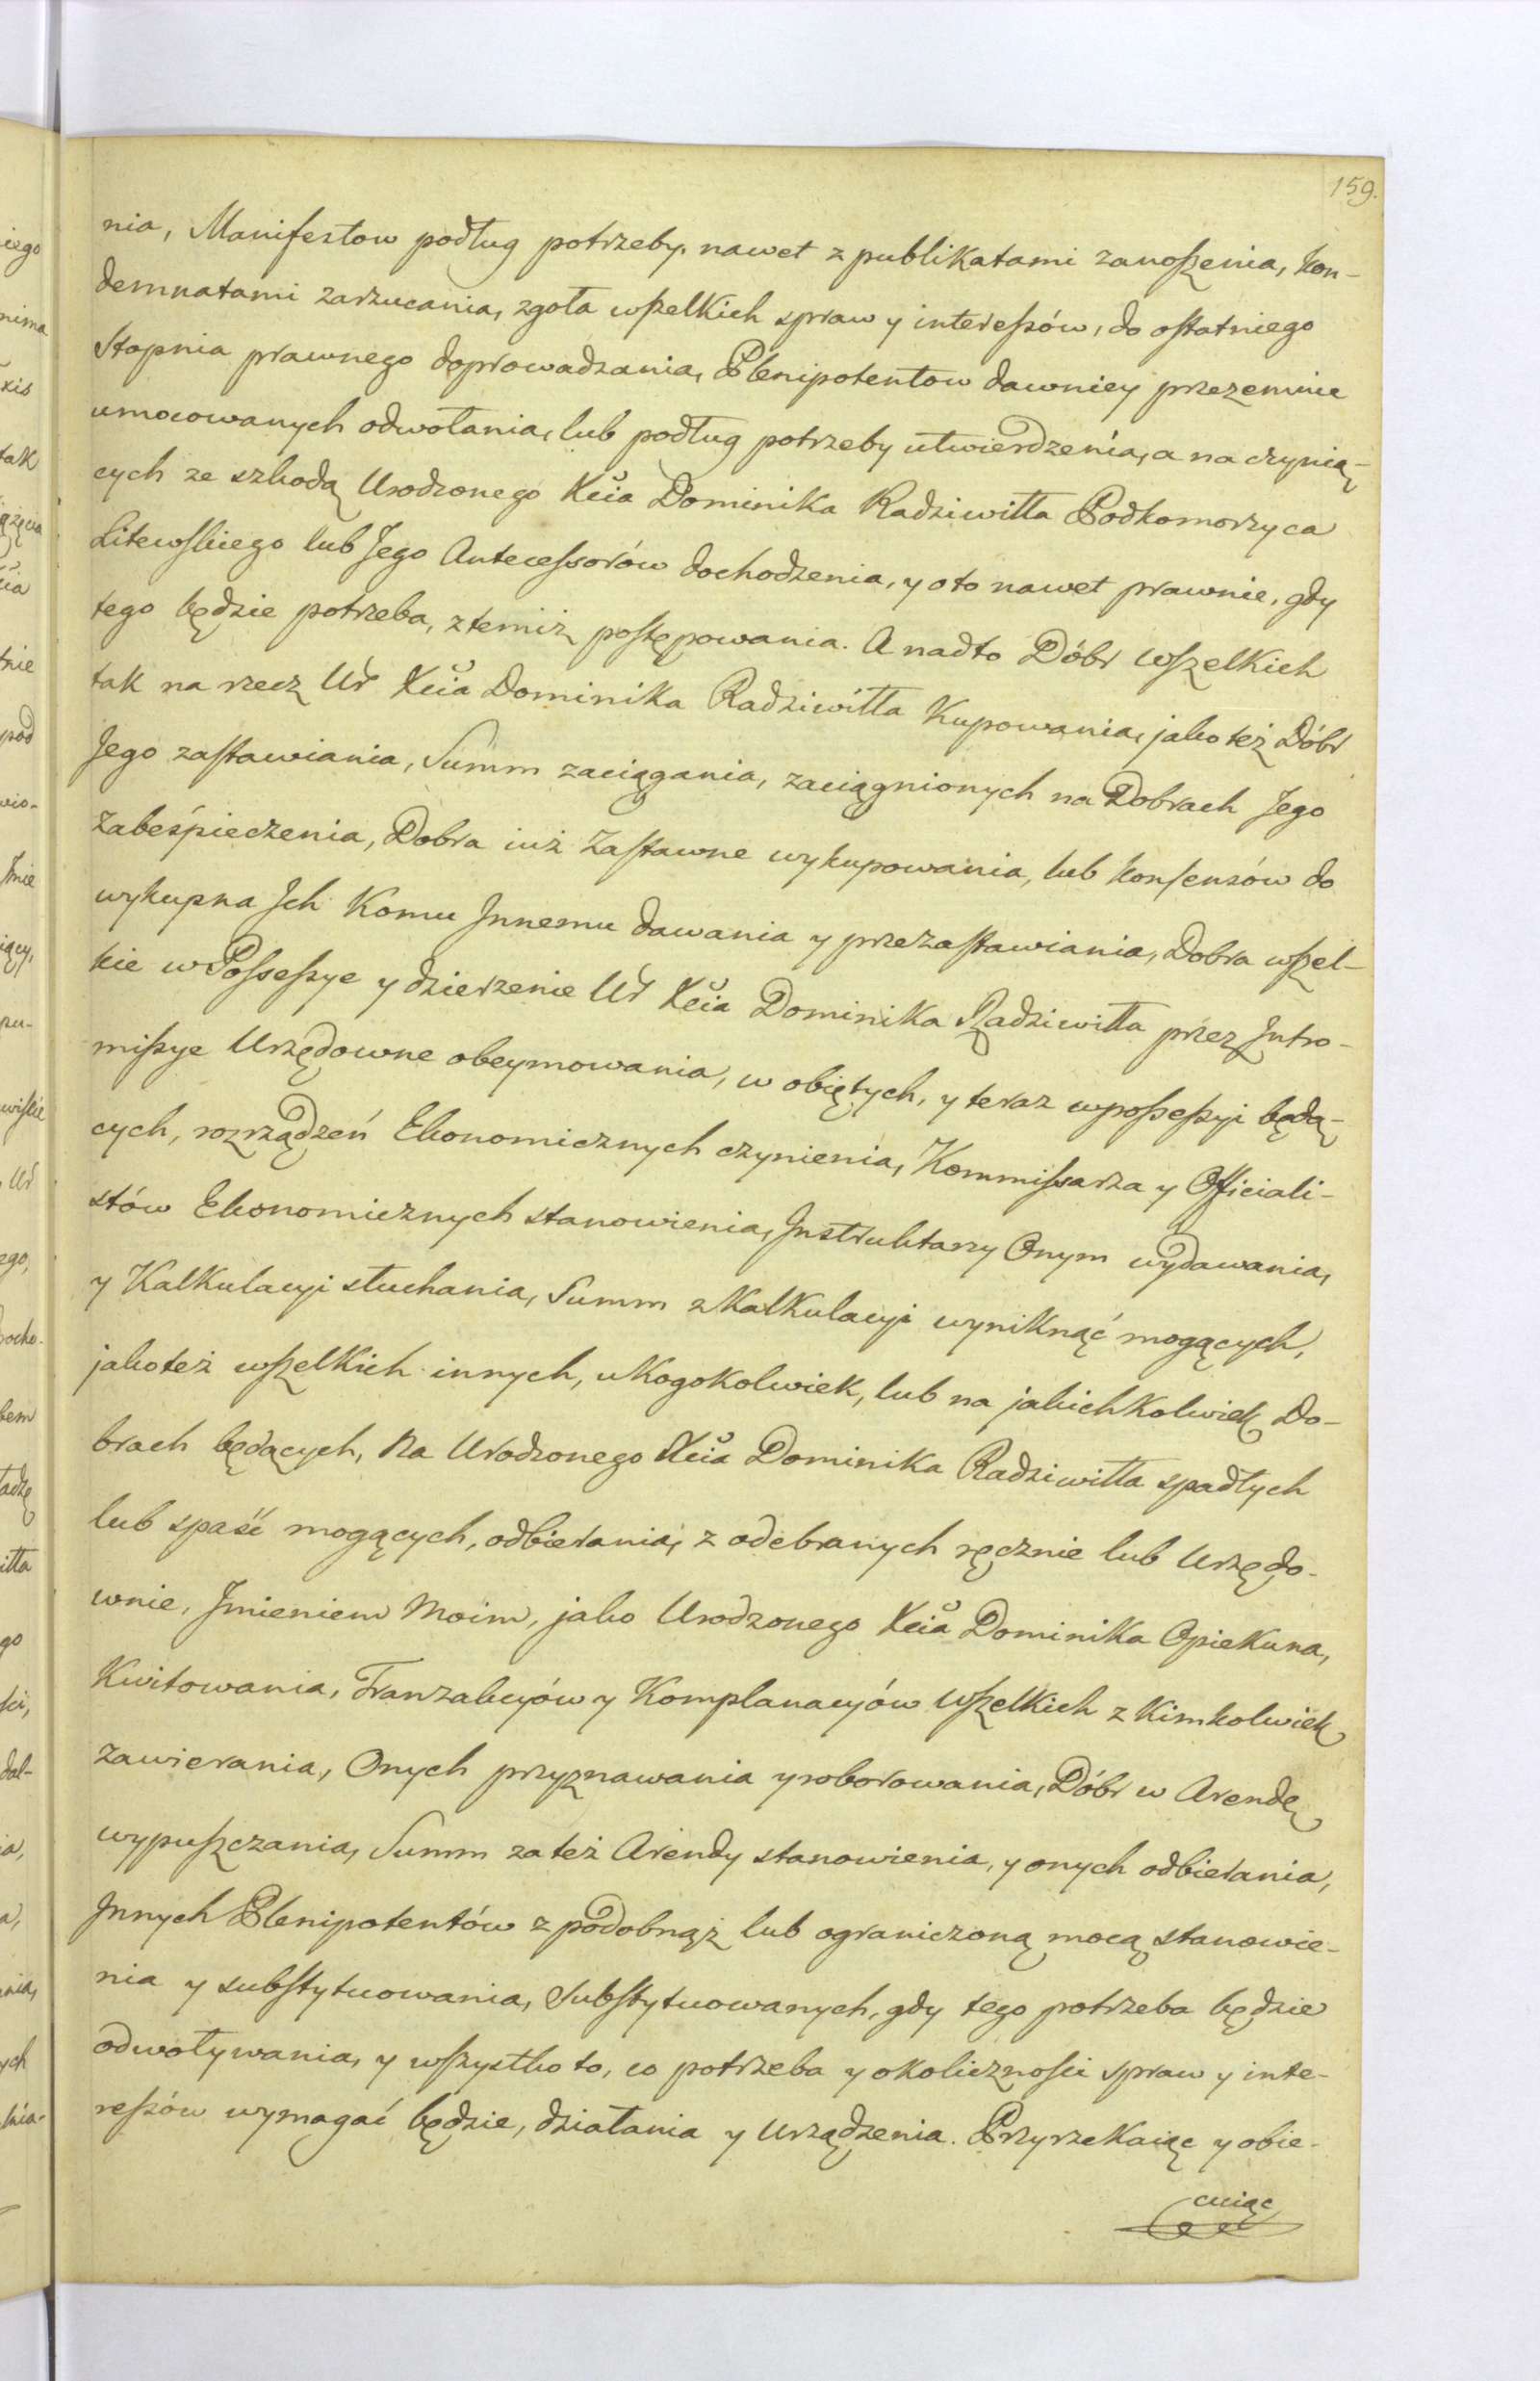 159.
nia, Manifestow podług potrzeby, nawet z publikatami zanoszenia, kon-
demnatami zarzucania, zgoła wszelkich spraw y interessów, do ostatniego
Stopnia prawnego doprowadzania, Plenipotentow dawniey przezemnie
umocowanych odwołania, lub podług potrzeby utwierdzenia, a na czynią-
cych ze szkodą Urodzonego Xcia Dominika Radziwiłła Podkomorzyca
Litewskiego lub Jego Antecessorów dochodzenia, y o to nawet prawnie, gdy
tego będzie potrzeba, z temiż postępowania. A nadto Dóbr wszelkich
tak na rzecz Ur Xcia Dominika Radziwiłła Kupowania, jako też Dóbr
Jego zastawiania, Summ zaciągania, zaciągnionych na Dobrach Jego
zabeśpieczenia, Dobra iuż Zastawne wykupowania, lub konsensów do
wykupna Jch Komu Jnnemu dawania y przezastawiania, Dobra wszel-
kie w Possessye y dzierzenie Ur Xcia Dominika Radziwiłła przez Jntro-
missye Urzędowne obeymowania, w obiętych, y teraz w possessyi będą-
cych, rozrządzeń Ekonomicznych czynienia, Kommissarza y Officiali-
stów Ekonomicznych stanowienia, Jnstruktarzy Onym wydawania,
y Kalkulacyi słuchania, Summ z Kalkulacyi wyniknąć mogących,
jako też wszelkich innych, u Kogokolwiek, lub na jakichkolwiek Do-
brach będących, Na Urodzonego Xcia Dominika Radziwiłła spadłych
lub spaść mogących, odbierania, z odebranych ręcznie lub Urzędo-
wnie, Jmieniem Moim, jako Urodzonego Xcia Dominika Opiekuna,
Kwitowania, Tranzakcyów y Komplanacyów wszelkich z Kimkolwiek
zawierania, Onych przyznawania y roborowania, Dóbr w Arendę
wypuszczania, Summ za też Arendy stanowienia, y onych odbierania,
Jnnych Plenipotentów z podobnąż lub ograniczoną mocą stanowie-
nia y substytuowania, Substytuowanych, gdy tego potrzeba będzie
odwoływania, y wszystko to, co potrzeba y okoliczności spraw y inte-
ressów wymagać będzie, działania y Urządzenia. Przyrzekaiąc y obie-
cuiąc